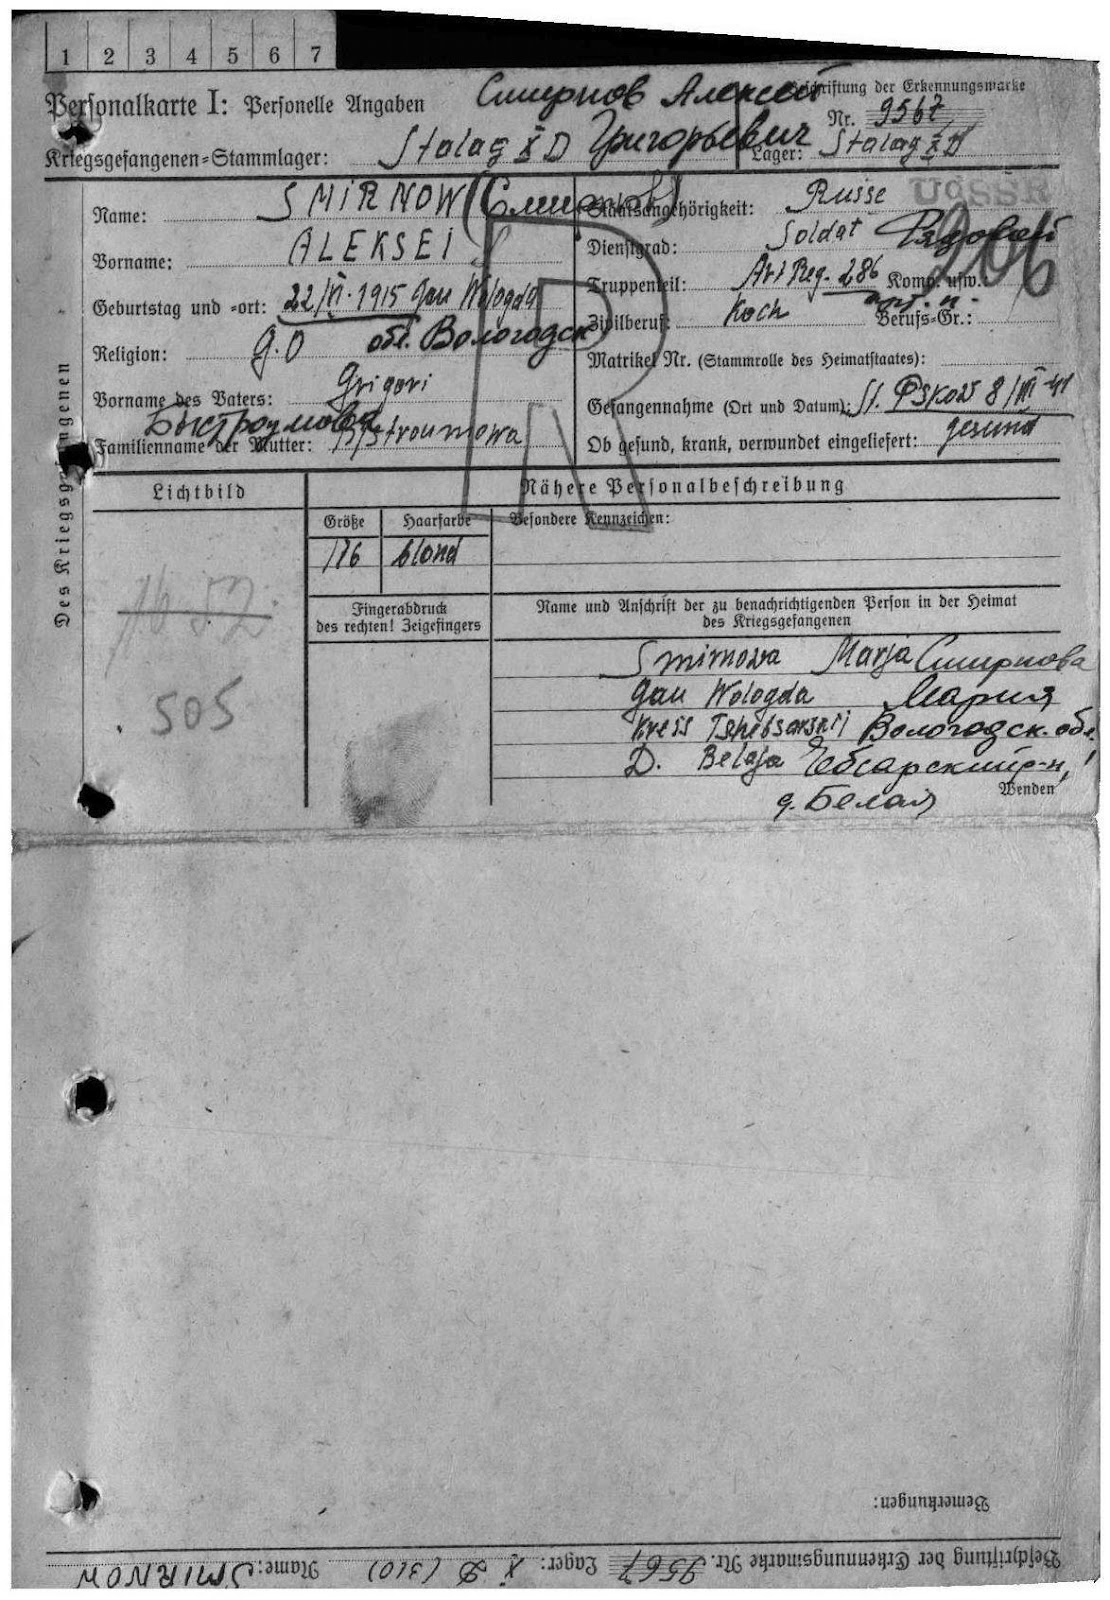 1 2 3 4 5 6 7
Personalkarte I: Personelle Angaben
Смирнов Алексей
Григорьевич
Beschriftung der Erkennungsmarke
Nr. 9567
Kriegsgefangenen-Stammlager: Stalag X D
Lager: Stalag X D
Des Kriegsgefangenen
Name: SMIRNOW (Смирнов)
Staatsangehörigkeit: Russe
UdSSR
Vorname: ALEKSEI
Dienstgrad: Soldat Рядовой
206
Truppenteil: Art Reg. 286 Komp. usw.
арт. п.
Geburtstag und -ort: 22/VI.1915 Gau Wologda
обл. Вологодск.
Zivilberuf: Koch Berufs-Gr.:
Religion: g.O
Matrikel Nr. (Stammrolle des Heimatstaates):
Vorname des Vaters: Grigori
Gefangennahme (Ort und Datum): St. Pskow 8/VII-41
Быстроумова
Familienname der Mutter: Bystroumowa
Ob gesund, krank, verwundet eingeliefert: gesund
RN
Lichtbild
Nähere Personalbeschreibung
Größe Haarfarbe Besondere Kennzeichen:
176 blond
505
Fingerabdruck
des rechten! Zeigefingers
Name und Anschrift der zu benachrichtigenden Person in der Heimat
des Kriegsgefangenen
Smirnowa Marja Смирнова
Gau Wologda Мария
Kreis Tshebsarskii Вологодск. обл.
D. Belaja Чебсарский р-н,
д. Белая
Wenden!
Bemerkungen:
Beschriftung der Erkennungsmarke Nr. 9567 Lager: X D (310) Name: SMIRNOW